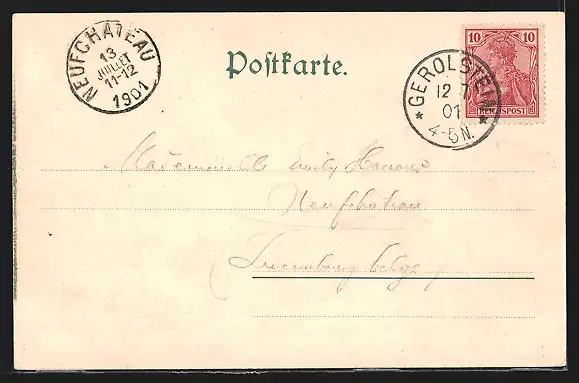 NEUFCHATEAU
13
JUILLET
11-12
1901
Postkarte.
10 10
REICHSPOST
GEROLSTEIN
12 7
01
4-5N.
Mademoiselle Emily
Neufchateau
(Luxembourg belge)